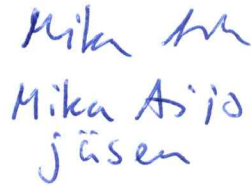 Mika
Mika Äijö
jäsen